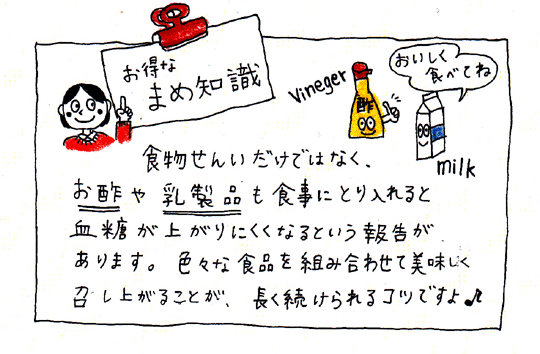 お得な
まめ知識
Vineger
酢
おいしく
食べてね
milk
食物せんいだけではなく、
お酢や乳製品も食事にとり入れると
血糖が上がりにくくなるという報告が
あります。色々な食品を組み合わせて美味しく
召し上がることが、長く続けられるコツですよ♪